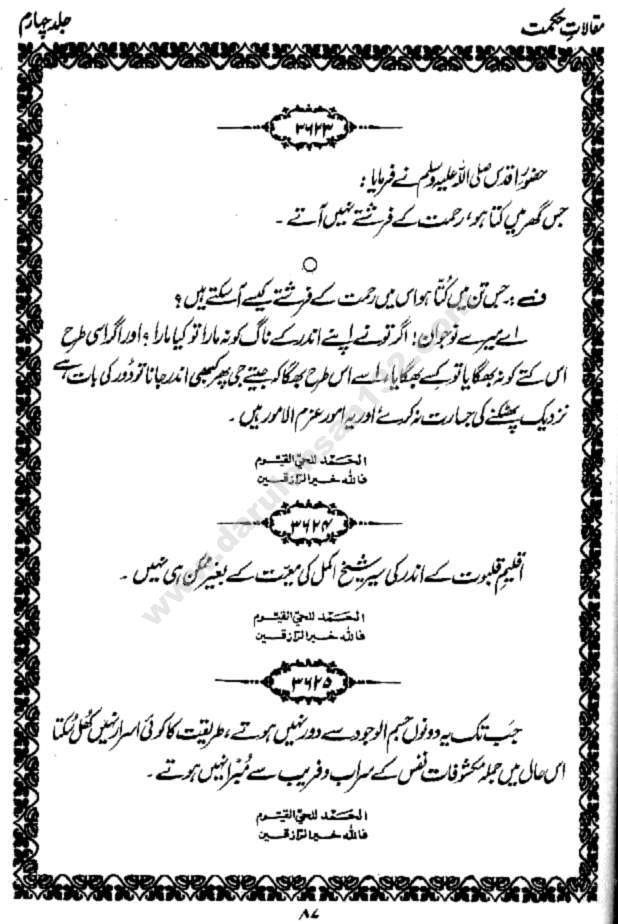 مقالاتِ حکمت
جلد چہارم
۳۶۲۳
حضورِ اقدس صلی اللہ علیہ وسلم نے فرمایا :
جس گھر میں کتا ہو، رحمت کے فرشتے نہیں آتے ۔
ف : جس تن میں کُتا ہو اس میں رحمت کے فرشتے کیسے آسکتے ہیں ؟
اے میرے نوجوان ! اگر تو نے اپنے اندر کے ناگ کو نہ مارا تو کیا مارا ؟ اور اگر اسی طرح
اس کتے کو نہ بھگایا تو کسے بھگایا، اسے اس طرح بھگا کہ جیتے جی پھر کبھی اندر جانا تو دُور کی بات ہے
نزدیک پھٹکنے کی جسارت نہ کرے اور یہ امور عزم الامور ہیں ۔
الحَمْد للحیّ القیّوم
فاللہ خیر الرّازقین
۳۶۲۴
اقلیمِ قلبوت کے اندر کی سیر شیخِ اکمل کی معیّت کے بغیر ممکن ہی نہیں ۔
الحَمْد للحیّ القیّوم
فاللہ خیر الرّازقین
۳۶۲۵
جب تک یہ دونوں جسم الوجود سے دور نہیں ہوتے، طریقیت کا کوئی اسرار نہیں کُھل سُکتا
اس حال میں جملہ مکشوفات نفس کے سراب و فریب سے مُبرا نہیں ہوتے ۔
الحَمْد للحیّ القیّوم
فاللہ خیر الرّازقین
۸۷